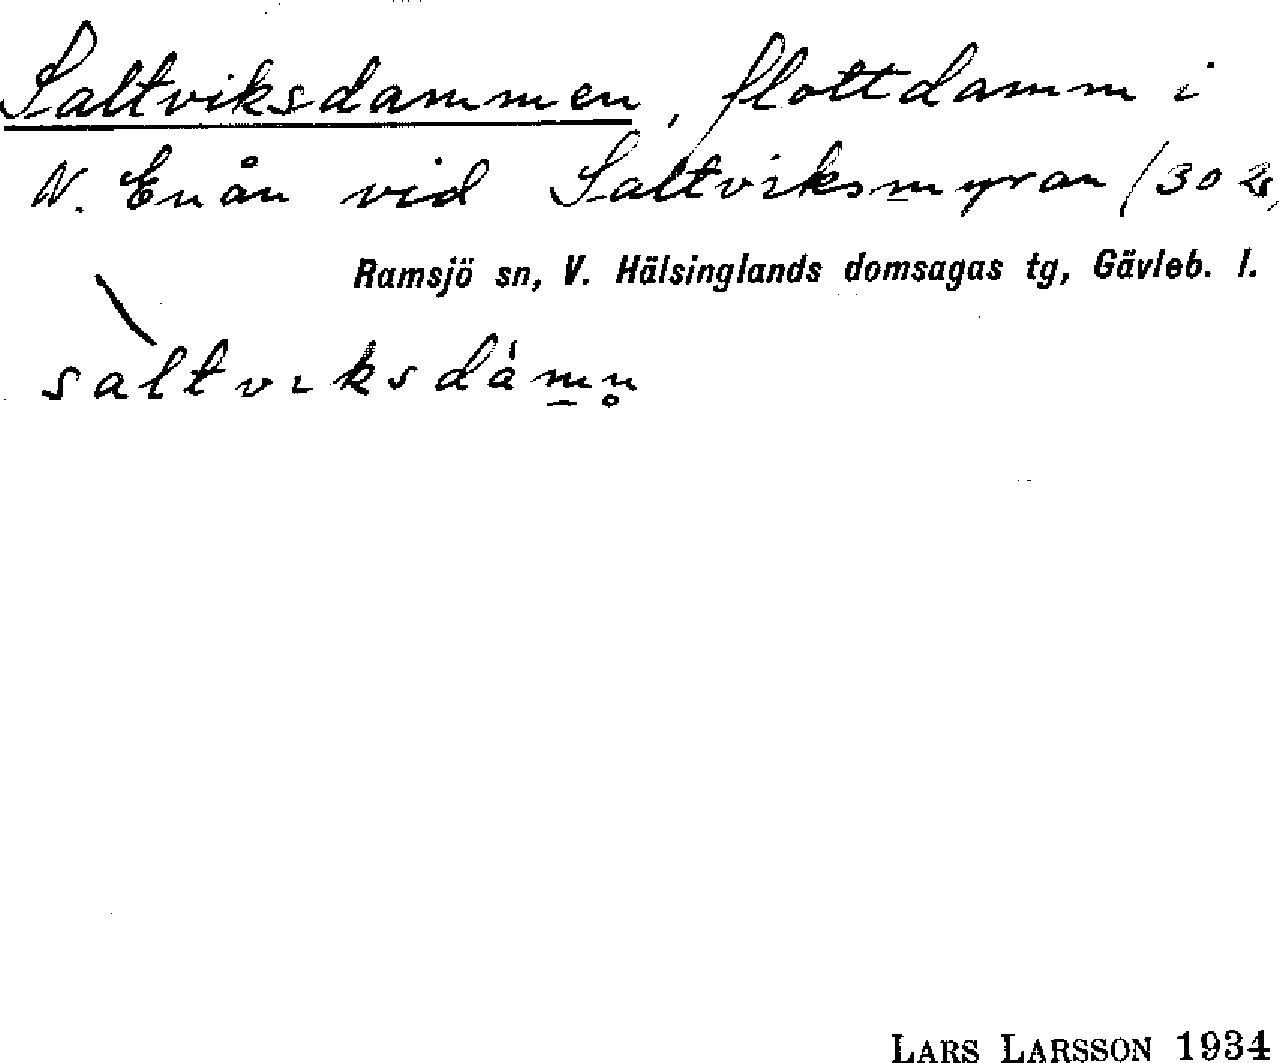 Saltviksdammen, flottdamm i
N. Enån vid Saltviksmyran (30
Ramsjö sn, V. Hälsinglands domsagas tg, Gävleb. l.
sàltvıksdám̲n̥
LARS LARSSON 1934